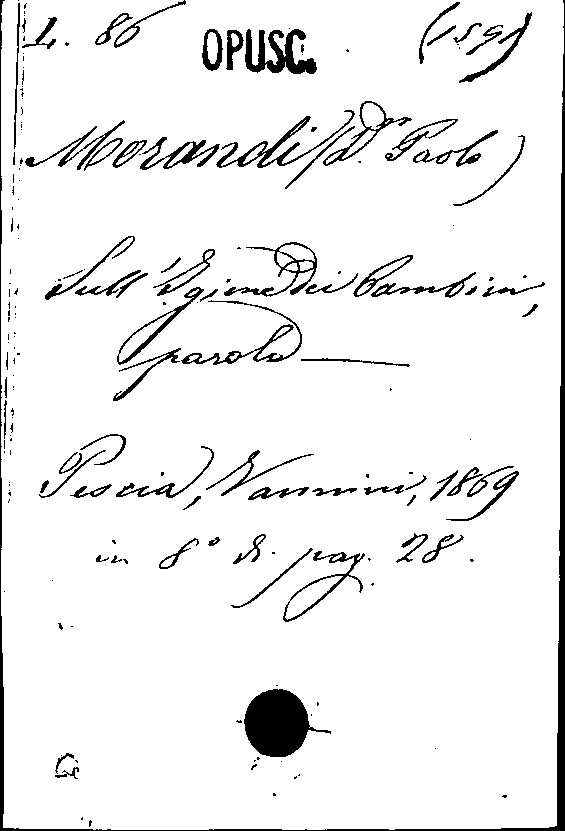 L. 86 OPUSC. (1591)
Morandi (Dr. Paolo)
Sull'Igiene dei Bambini,
parole
Pescia, Vannini, 1869
in 8° di pag. 28.